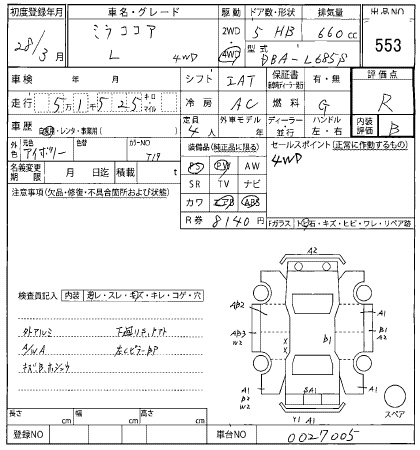 初度登録年月 車名・グレード 駆動 ドア数・形状 排気量 出品NO
28/3月 ミラココア 2WD 5 HB 660cc 553
L 4WD 4WD 型式 DBA-L685S
車検 年 月 シフト IAT 保証書 有・無 評価点
走行 5万1千525 キロ マイル 冷房 AC 燃料 G R
車歴 自家用・レンタ・事業用( ) 定員 4人 外車モデル 年 ディーラー・並行 ハンドル 左・右 内装評価 B
外色 元色 アイボリー 色替 カラーNO T19 装備品(純正品に限る) セールスポイント(正常に作動するもの)
名義変更期限 月 日迄 積載 t PS PW AW 4WD
注意事項(欠品・修復・不具合箇所および状態) SR TV ナビ
カワ エアB ABS
R券 8140円 Fガラス トビ石・キズ・ヒビ・ワレ・リペア跡
A2
検査員記入 内装 汚レ・スレ・キズ・キレ・コゲ・穴
AB2 A1
外アルミ AB3 W2 B1 B1 A1
A/W A
A1 B2 W2 BA1 A1 A1
Y1 A1 スペア
長さ cm 幅 cm 高さ cm
登録NO 車台NO 0027005